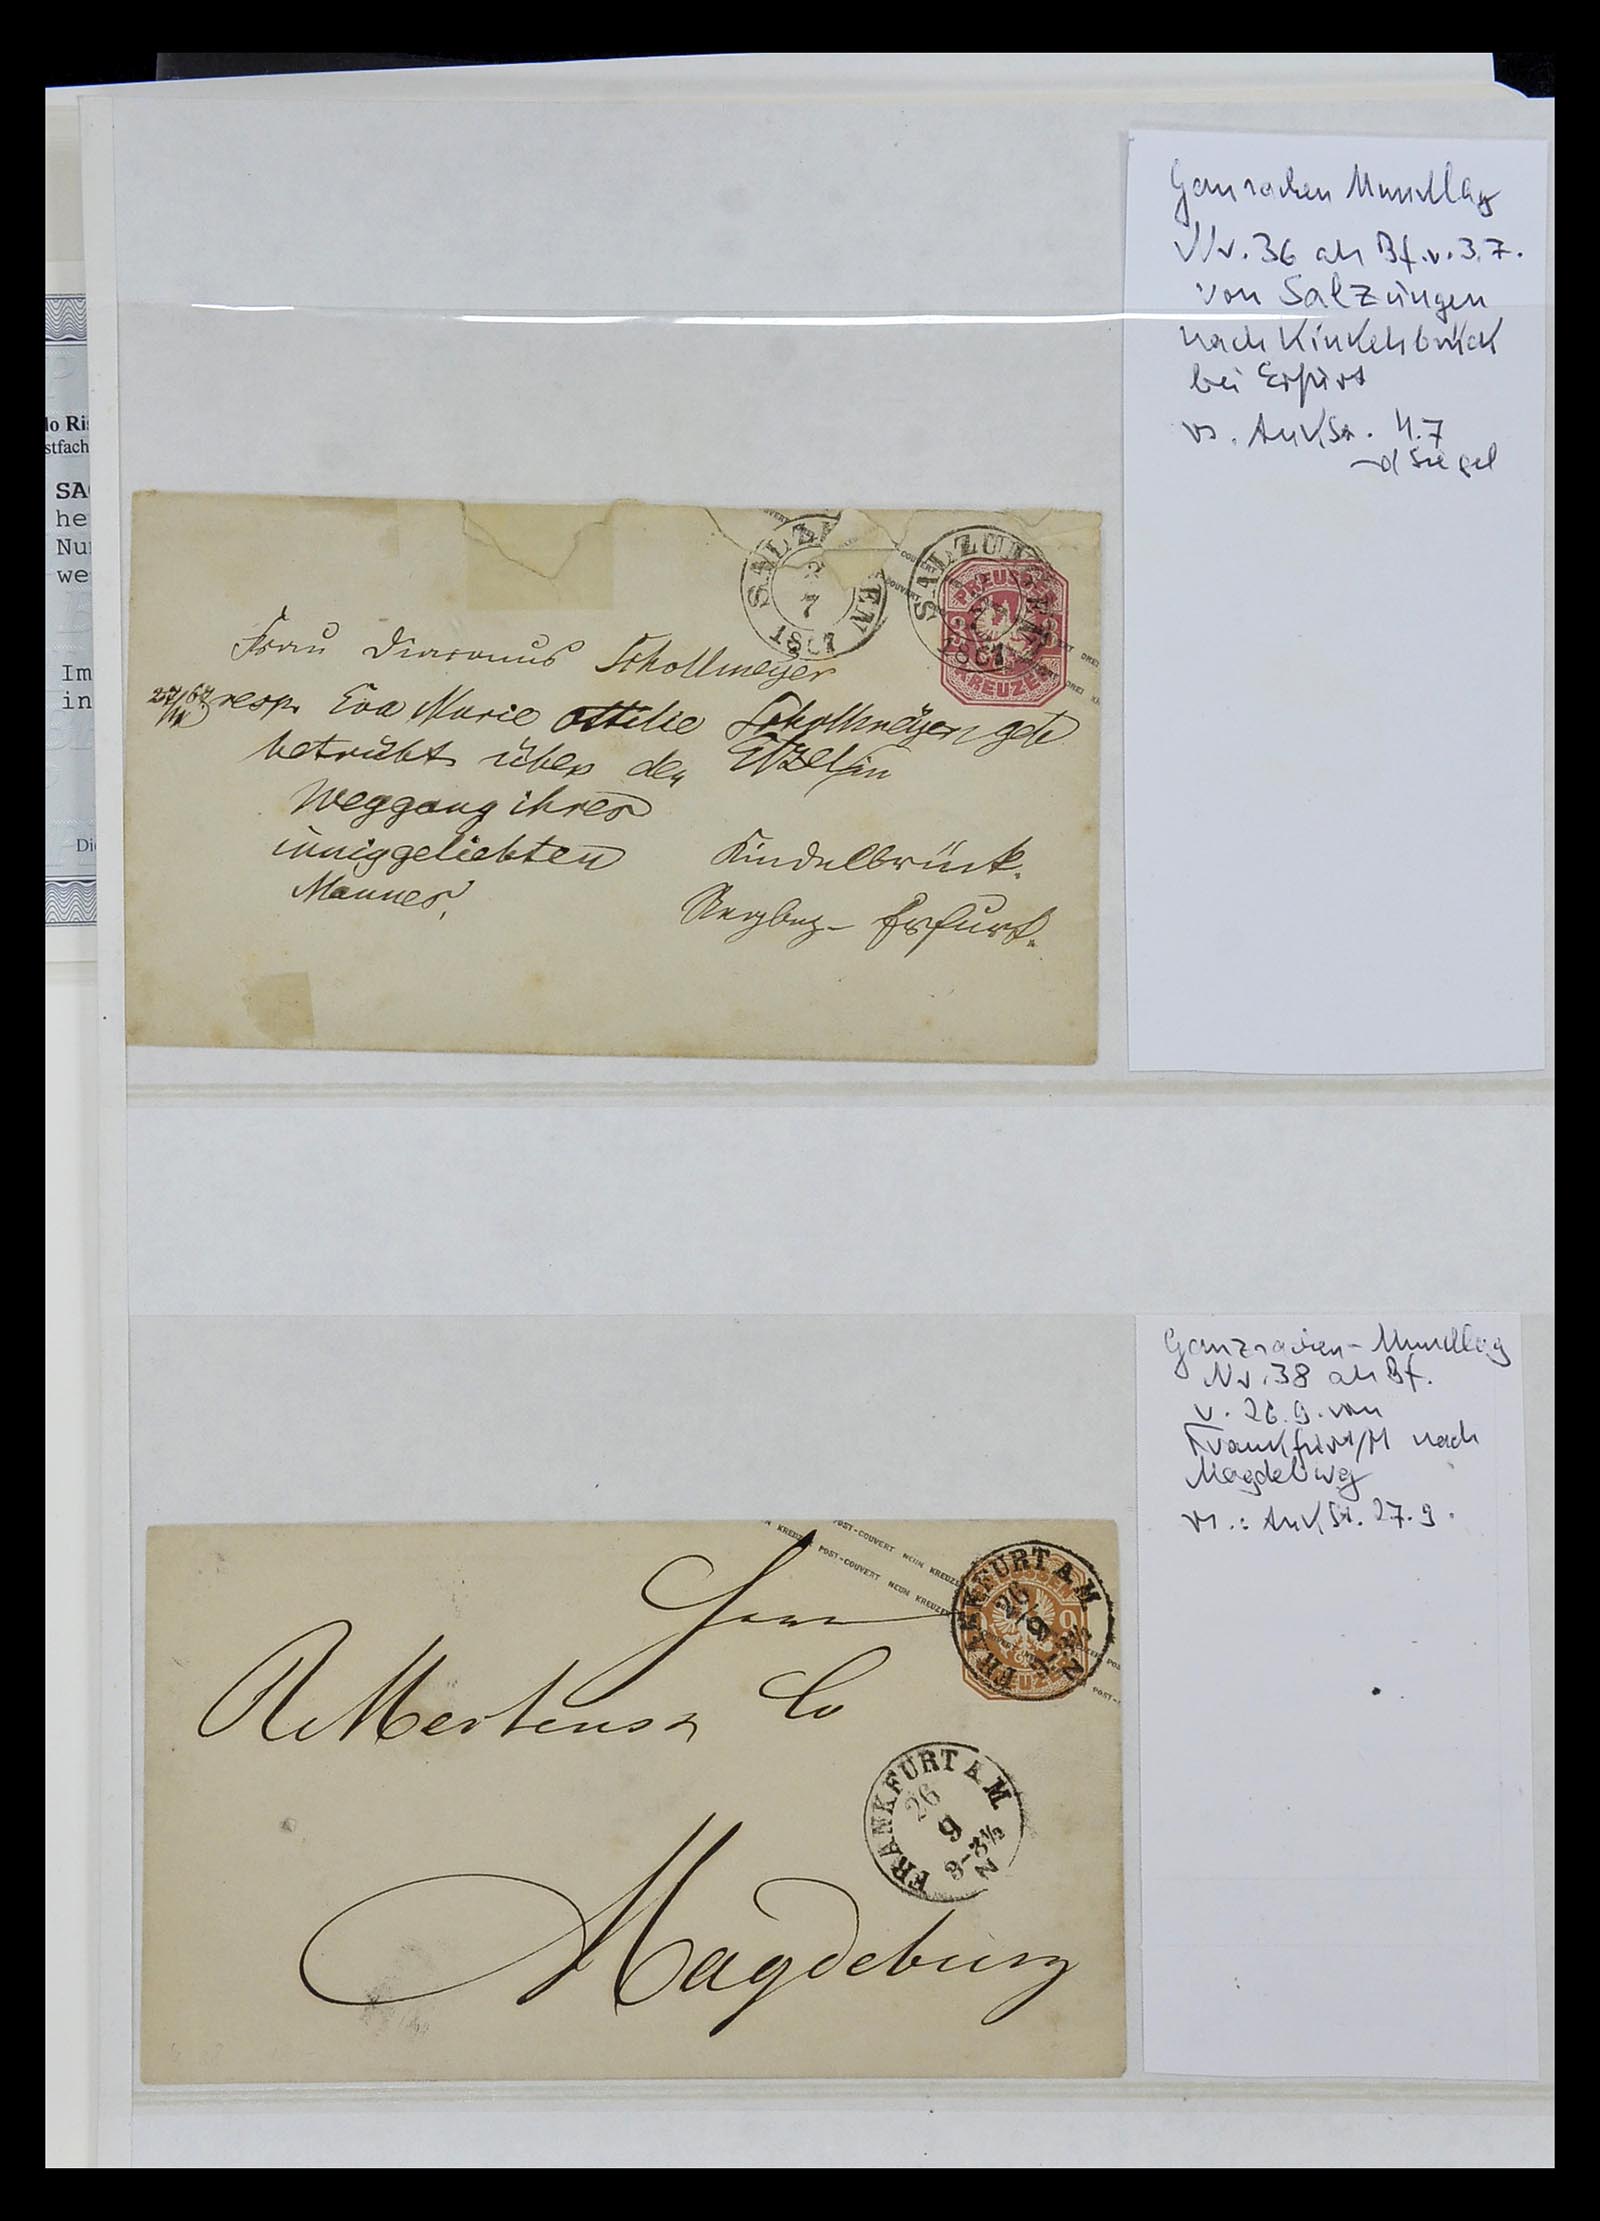 lo Ris
stfach
SA
he
Nu
we
Im
in
Di
Ganzsachen Umschlag
Nr. 36 als Bf. v. 3.7.
von Salzungen
nach Kinkelsbrück
bei Erfurt
rs. AnkSt. 4.7
Siegel
SALZUNGEN
3
7
1867
SALZUNGEN
1867
PREUSSEN
3
KREUZER
Frau Diaconus Schollmeyer
27/ 67 resp. Eva Marie Ottilie Schollmeyer geb
betrübt über den Etzelin
Weggang ihres
inniggeliebten
Mannes.
Kindelbrück.
Rgzbez. Erfurt.
Ganzsachen-Umschlag
Nr. 38 als Bf.
v. 26.9. von
Frankfurt/M nach
Magdeburg
rs.: AnkSt. 27.9.
POST-COUVERT NEUN KREUZER
N KREUZER POST-COUVERT NEUN KREUZER
FRANKFURT A. M.
26
9
9
Herrn
R Mertens & Co
FRANKFURT A. M.
26
9
3-3½
N
Magdeburg